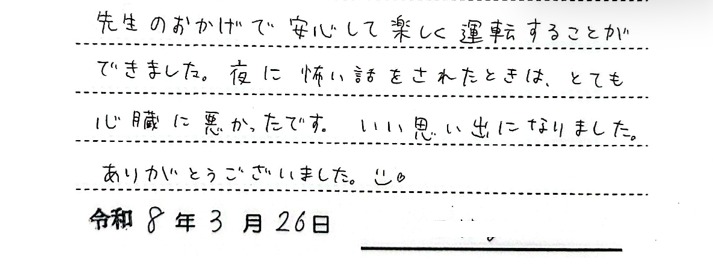 先生のおかげで安心して楽しく運転することが
できました。夜に怖い話をされたときは、とても
心臓に悪かったです。いい思い出になりました。
ありがとうございました。
令和8年3月26日